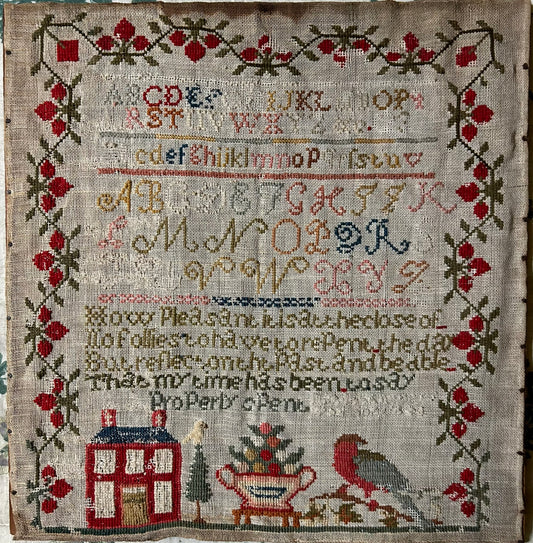 ABCDEF IJKL NOP
RST WX
cdefghijklmnop rstu
AB GHIJK
L MNOPQR
VW XYZ
How Pleasant it is at the close of
No follies to have to rePent the day
But reflect on the Past and be able
That my time has been to say
ProPerly sPent